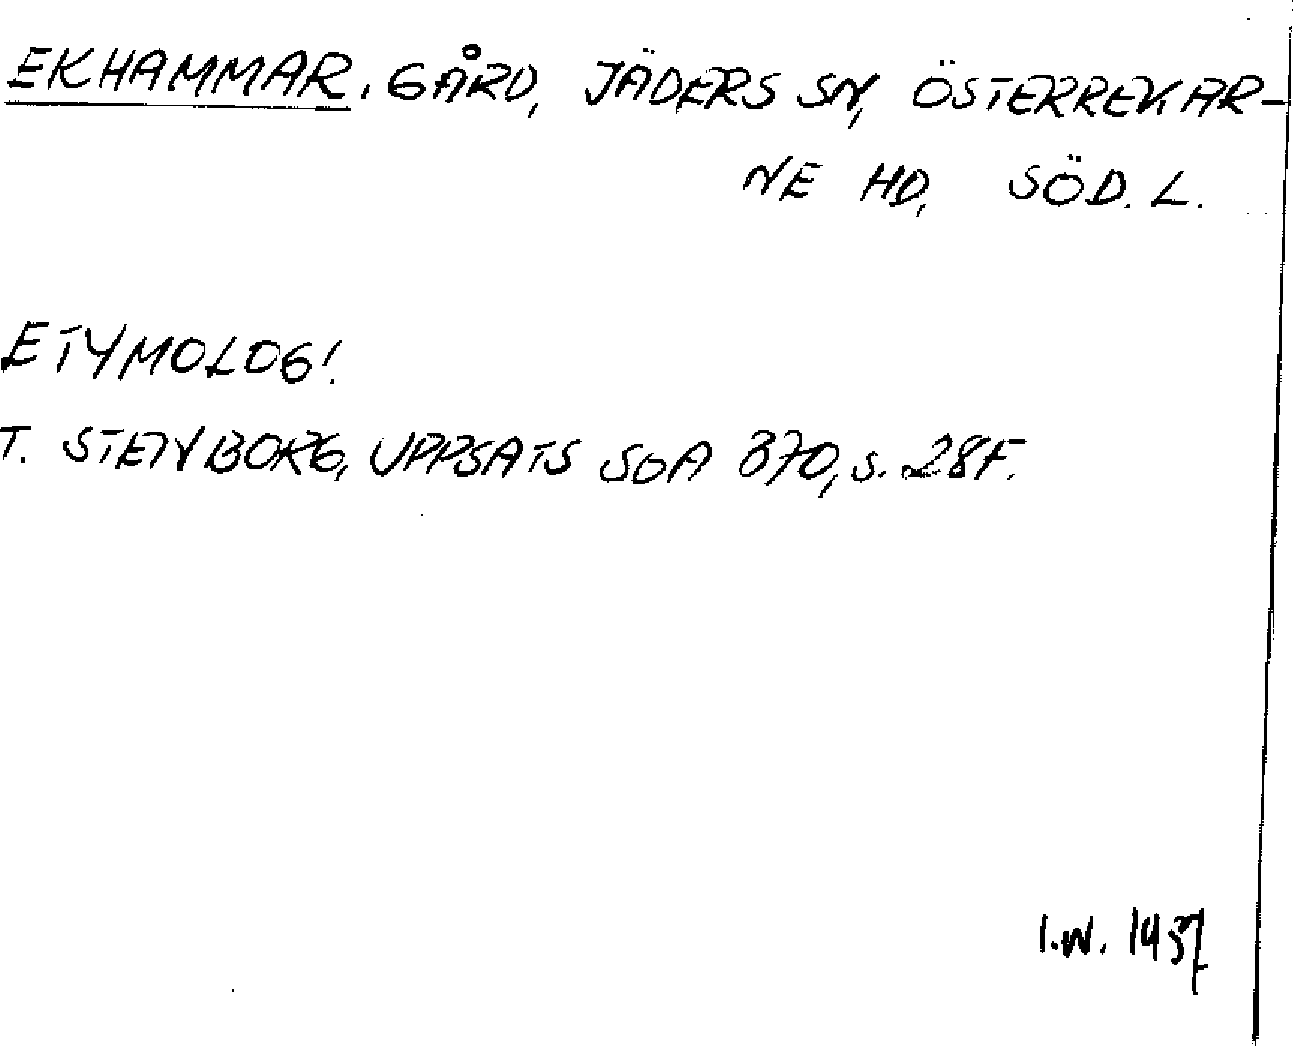 EKHAMMAR. GÅRD, JÄDERS SN, ÖSTERREKAR-
NE HD, SÖD. L.
ETYMOLOGI.
T. STENBORG, UPPSATS SOA 370, S. 28F.
I.W. 1957